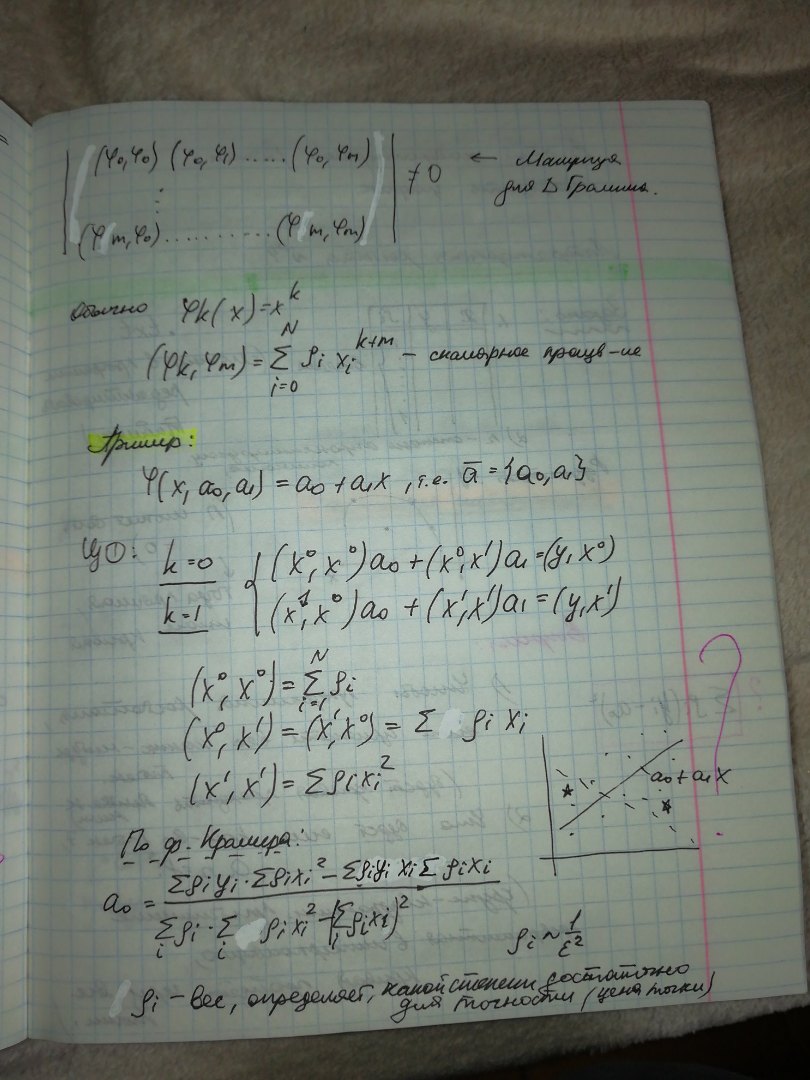 | (φ₀,φ₀) (φ₀,φ₁) ..... (φ₀,φₘ) |
⋮ ≠ 0 ← Матрица
(φₘ,φ₀) ........... (φₘ,φₘ) для D Грамма.
Обычно φₖ(x) = xᵏ
(φₖ, φₘ) = Σ_{i=0}^{N} ρᵢ xᵢ^{k+m} – скалярное произв-ие
Пример:
φ(x, a₀, a₁) = a₀ + a₁x , т.е. ā = {a₀, a₁}
Из ①:
k=0 { (x⁰, x⁰)a₀ + (x⁰, x¹)a₁ = (y, x⁰)
k=1 (x¹, x⁰)a₀ + (x¹, x¹)a₁ = (y, x¹)
(x⁰, x⁰) = Σ_{i=1}^{N} ρᵢ
(x⁰, x¹) = (x¹, x⁰) = Σ ρᵢ xᵢ
(x¹, x¹) = Σ ρᵢ xᵢ²
?
a₀ + a₁x
По ф. Крамера:
a₀ = (Σρᵢyᵢ · Σρᵢxᵢ² − Σρᵢyᵢxᵢ Σρᵢxᵢ) / (Σᵢ ρᵢ · Σᵢ ρᵢxᵢ² − (Σᵢ ρᵢxᵢ)²)
ρᵢ ~ 1/ε²
ρᵢ – вес, определяет, какой степени достаточно
для точности (цена точки)